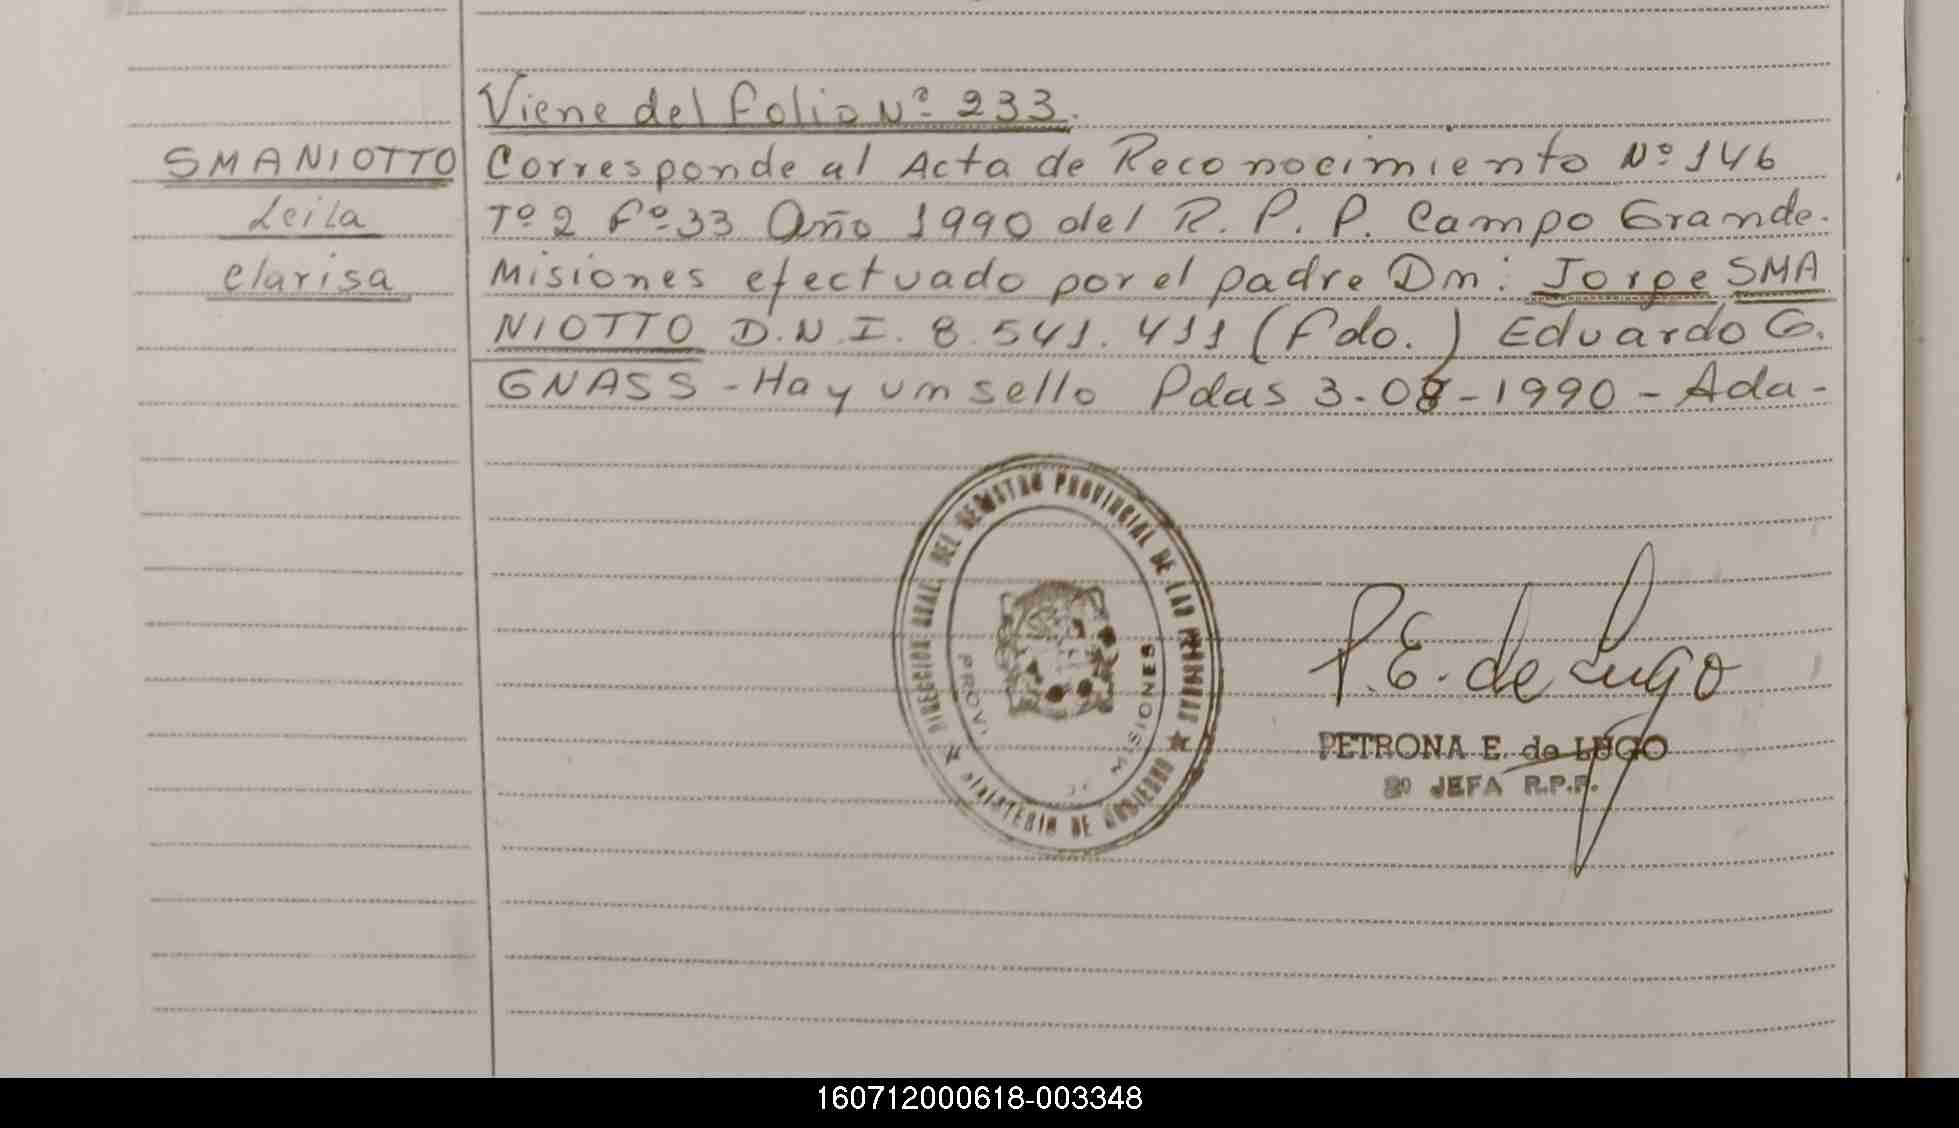 Viene del folio Nº 233.
SMANIOTTO
Leila
Clarisa
Corresponde al Acta de Reconocimiento Nº 146
Tº 2 Fº 33 Año 1990 del R. P. P. Campo Grande.
Misiones efectuado por el padre Dn: Jorge SMA
NIOTTO D.N.I. 8.541.411 (Fdo.) Eduardo G.
GNASS - Hay un sello Pdas 3-08-1990 - Ada-
DIRECCION GRAL. DEL REGISTRO PROVINCIAL DE LAS PERSONAS ★
MINISTERIO DE GOBIERNO ★
PROVI
MISIONES
P.E. de Lugo
PETRONA E. de LUGO
2º JEFA R.P.P.
160712000618-003348